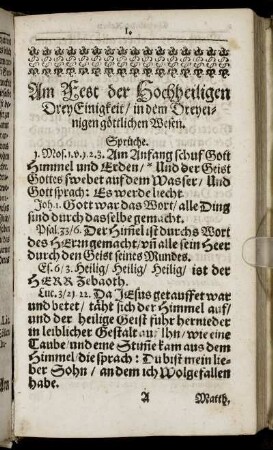 1.
Am Fest der Hochheiligen
Drey Einigkeit / in dem Dreyei-
nigen göttlichen Wesen.
Sprüche.
1. Mos. 1. v. 1. 2. 3. Am Anfang schuf Gott
Himmel und Erden / * Und der Geist
Gottes schwebet auf dem Wasser / Und
Gott sprach: Es werde liecht.
Joh. 1. Gott war das Wort / alle Ding
sind durch dasselbe gemacht.
Psal. 33/6. Der Him̃el ist durchs Wort
des HErrn gemacht / vñ alle sein Heer
durch den Geist seines Mundes.
Es. 6/3. Heilig / Heilig / Heilig / ist der
HERR Zebaoth.
Luc. 3/21. 22. Da JEsus getauffet war
und betet / täht sich der Himmel auf /
und der heilige Geist fuhr hernieder
in leiblicher Gestalt auf Ihn / wie eine
Taube / und eine Stim̃e kam aus dem
Himmel / die sprach: Du bist mein lie-
ber Sohn / an dem ich Wolgefallen
habe.
A Matth.